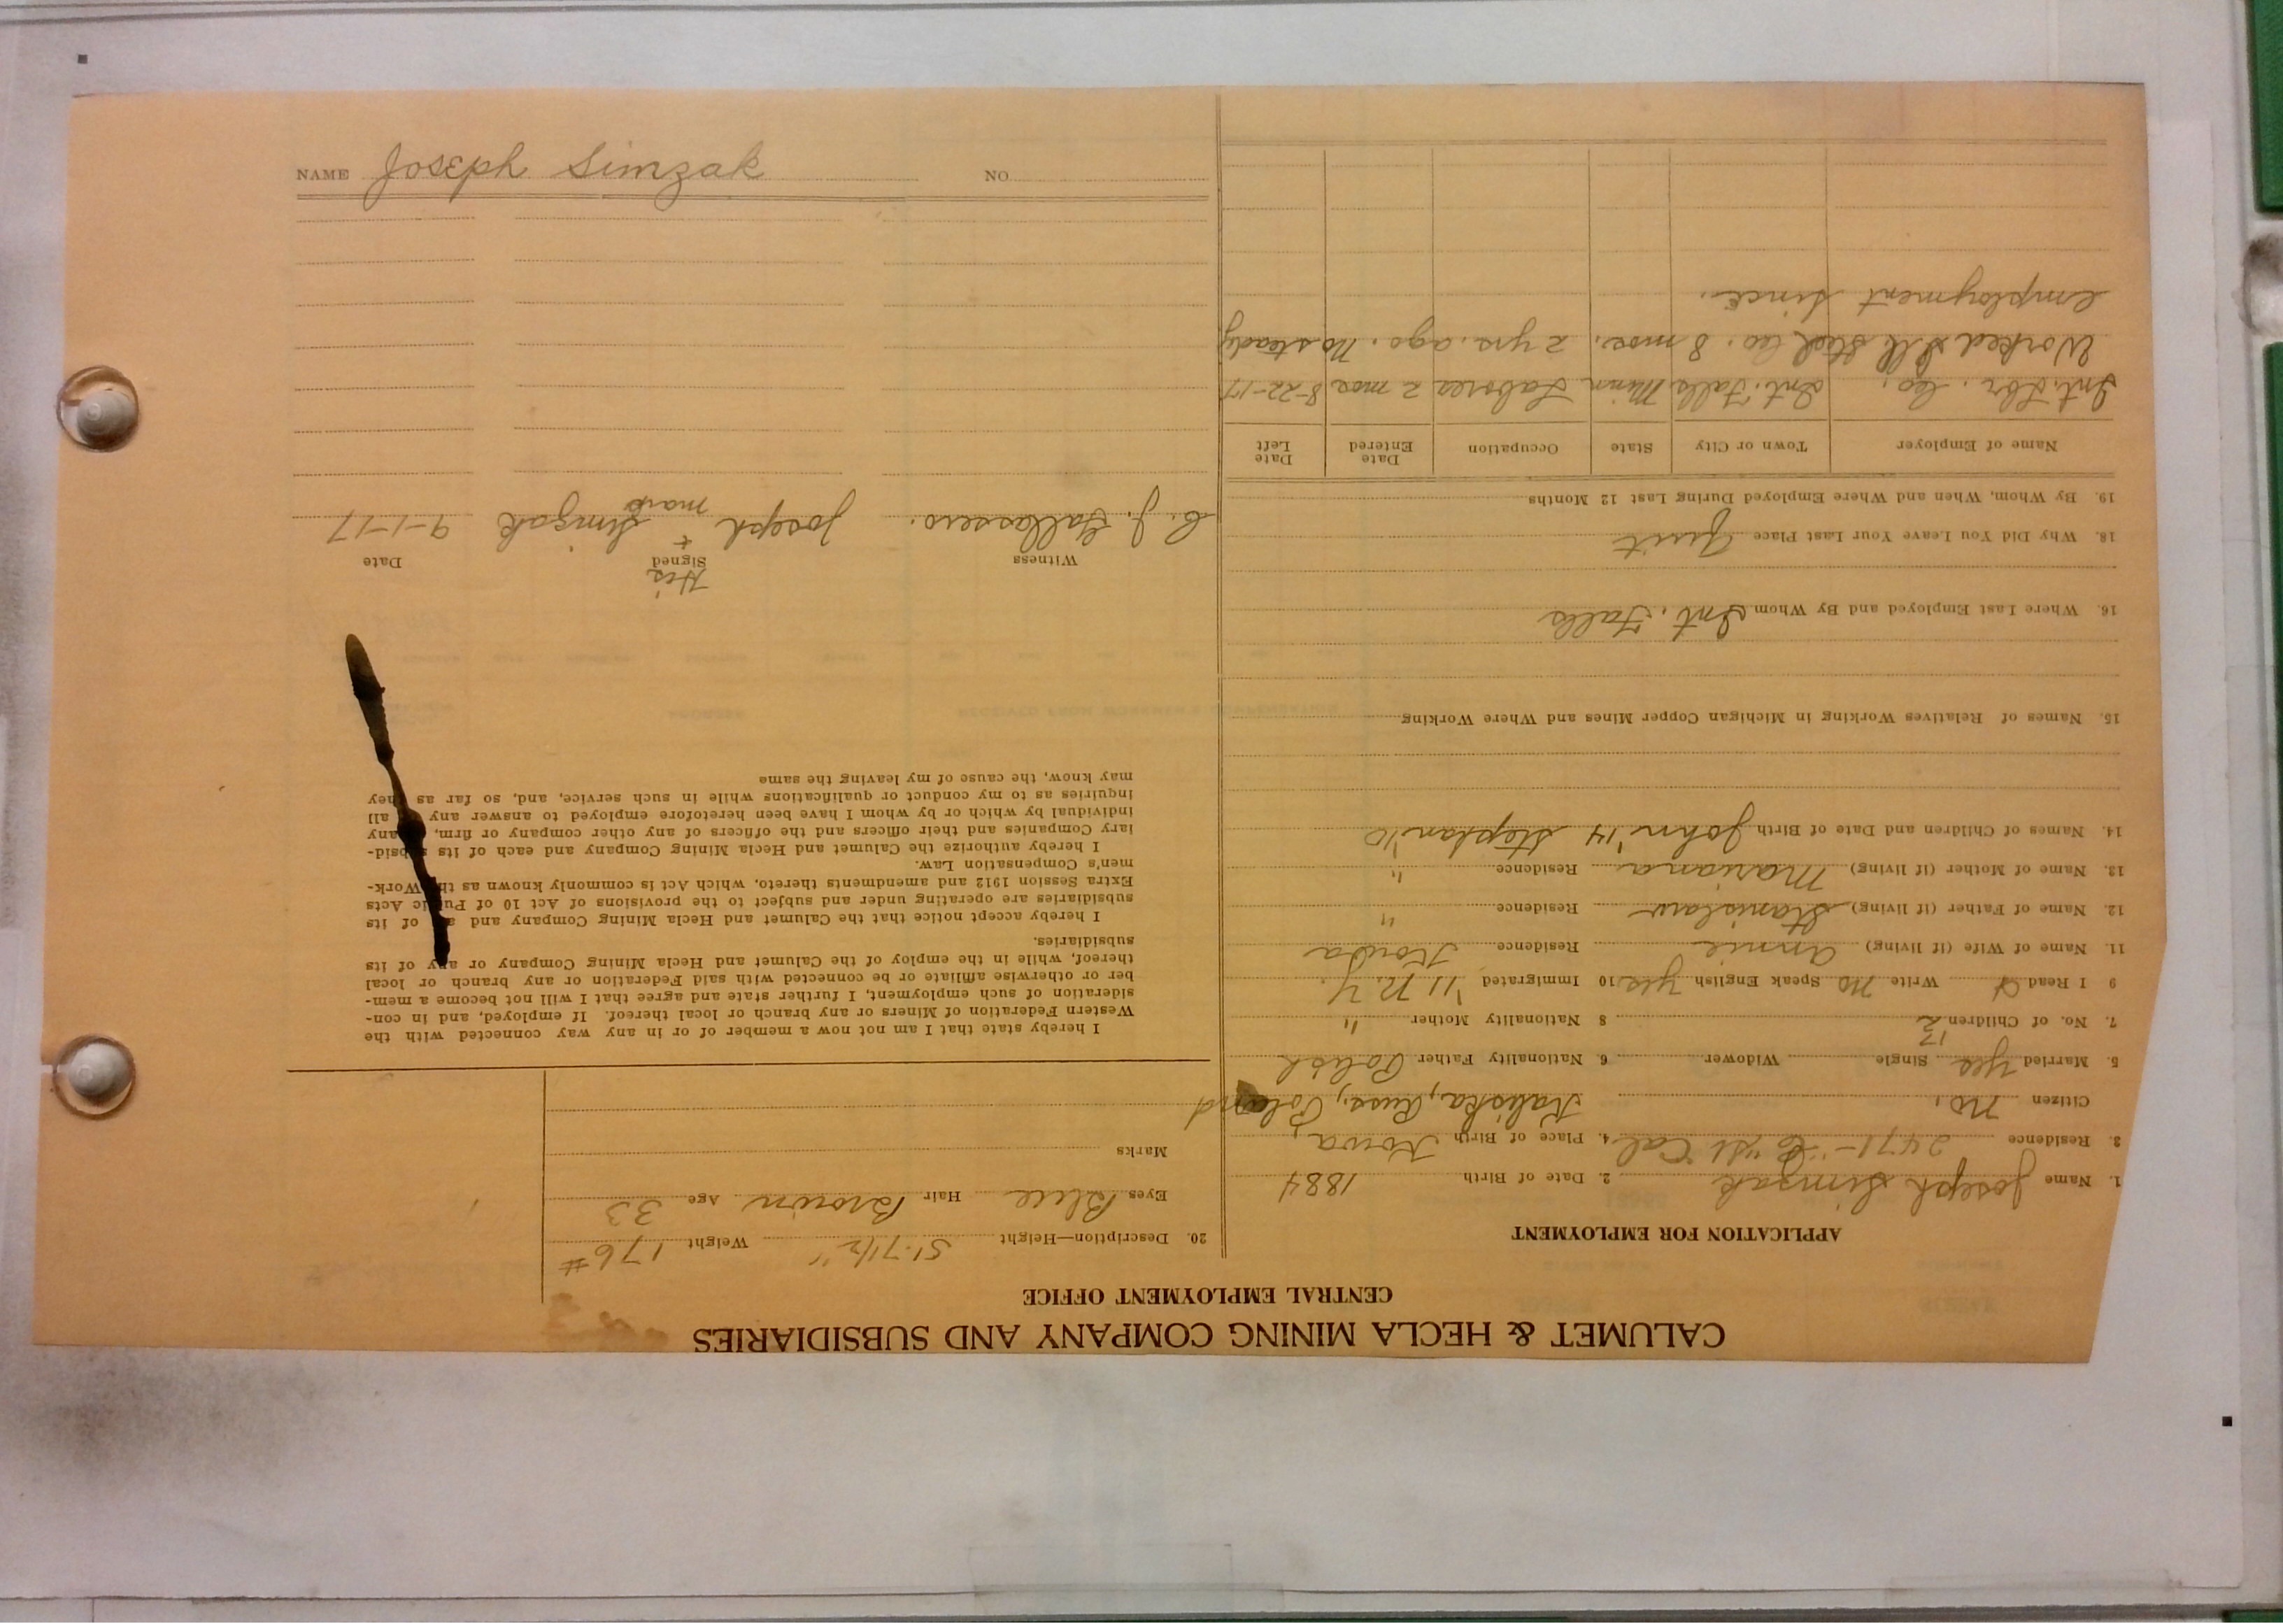 CALUMET & HECLA MINING COMPANY AND SUBSIDIARIES
CENTRAL EMPLOYMENT OFFICE
APPLICATION FOR EMPLOYMENT
1. Name Joseph Simzak 2. Date of Birth 1884
3. Residence 2471-"B" St Cal. 4. Place of Birth Kowa,
Citizen No. Kaliska, Russ, Poland
5. Married Yes Single Widower 6. Nationality Father Polish
7. No. of Children 2 8 Nationality Mother "
9 I Read Write No Speak English Yes 10 Immigrated '11 N.Y.
11. Name of Wife (if living) Annie Residence
12. Name of Father (if living) Stanislaw Residence "
13. Name of Mother (if living) Mariana Residence "
14. Names of Children and Date of Birth John '14 Stephan '10
15. Names of Relatives Working in Michigan Copper Mines and Where Working
16. Where Last Employed and By Whom Int. Falls
18. Why Did You Leave Your Last Place Quit
19. By Whom, When and Where Employed During Last 12 Months
Name of Employer Town or City State Occupation Date Entered Date Left
Int. Lbr. Co. Int. Falls Minn Laborer 2 mos 8-22-17
Worked Ill Steel Co. 8 mos. 2 yrs. ago. No steady
employment since.
20. Description—Height 5'-7 1/2" Weight 176 #
Eyes Blue Hair Brown Age 33
Marks
I hereby state that I am not now a member of or in any way connected with the
Western Federation of Miners or any branch or local thereof. If employed, and in con-
sideration of such employment, I further state and agree that I will not become a mem-
ber or otherwise affiliate or be connected with said Federation or any branch or local
thereof, while in the employ of the Calumet and Hecla Mining Company or any of its
subsidiaries.
I hereby accept notice that the Calumet and Hecla Mining Company and all of its
subsidiaries are operating under and subject to the provisions of Act 10 of Public Acts
Extra Session 1912 and amendments thereto, which Act is commonly known as the Work-
men's Compensation Law.
I hereby authorize the Calumet and Hecla Mining Company and each of its subsid-
iary Companies and their officers and the officers of any other company or firm, any
individual by which or by whom I have been heretofore employed to answer any all
inquiries as to my conduct or qualifications while in such service, and, so far as they
may know, the cause of my leaving the same
His
Witness Signed Date
C. J. Gallassero. Joseph + Simzak 9-1-17
mark
NAME Joseph Simzak NO.